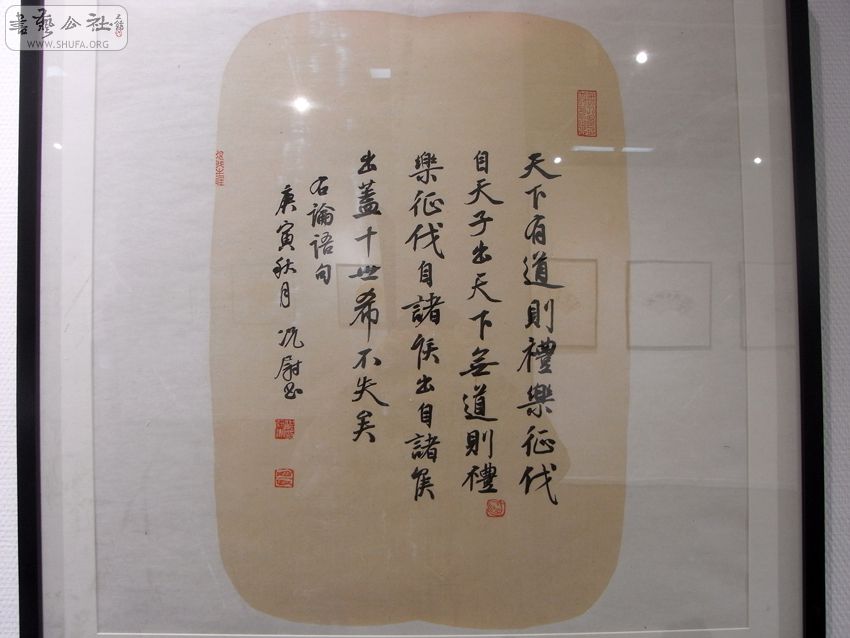 天下有道則禮樂征伐
自天子出天下無道則禮
樂征伐自諸侯出自諸侯
出蓋十世希不失矣
右論語句
庚寅秋月 沈尉書
書藝公社
WWW.SHUFA.ORG